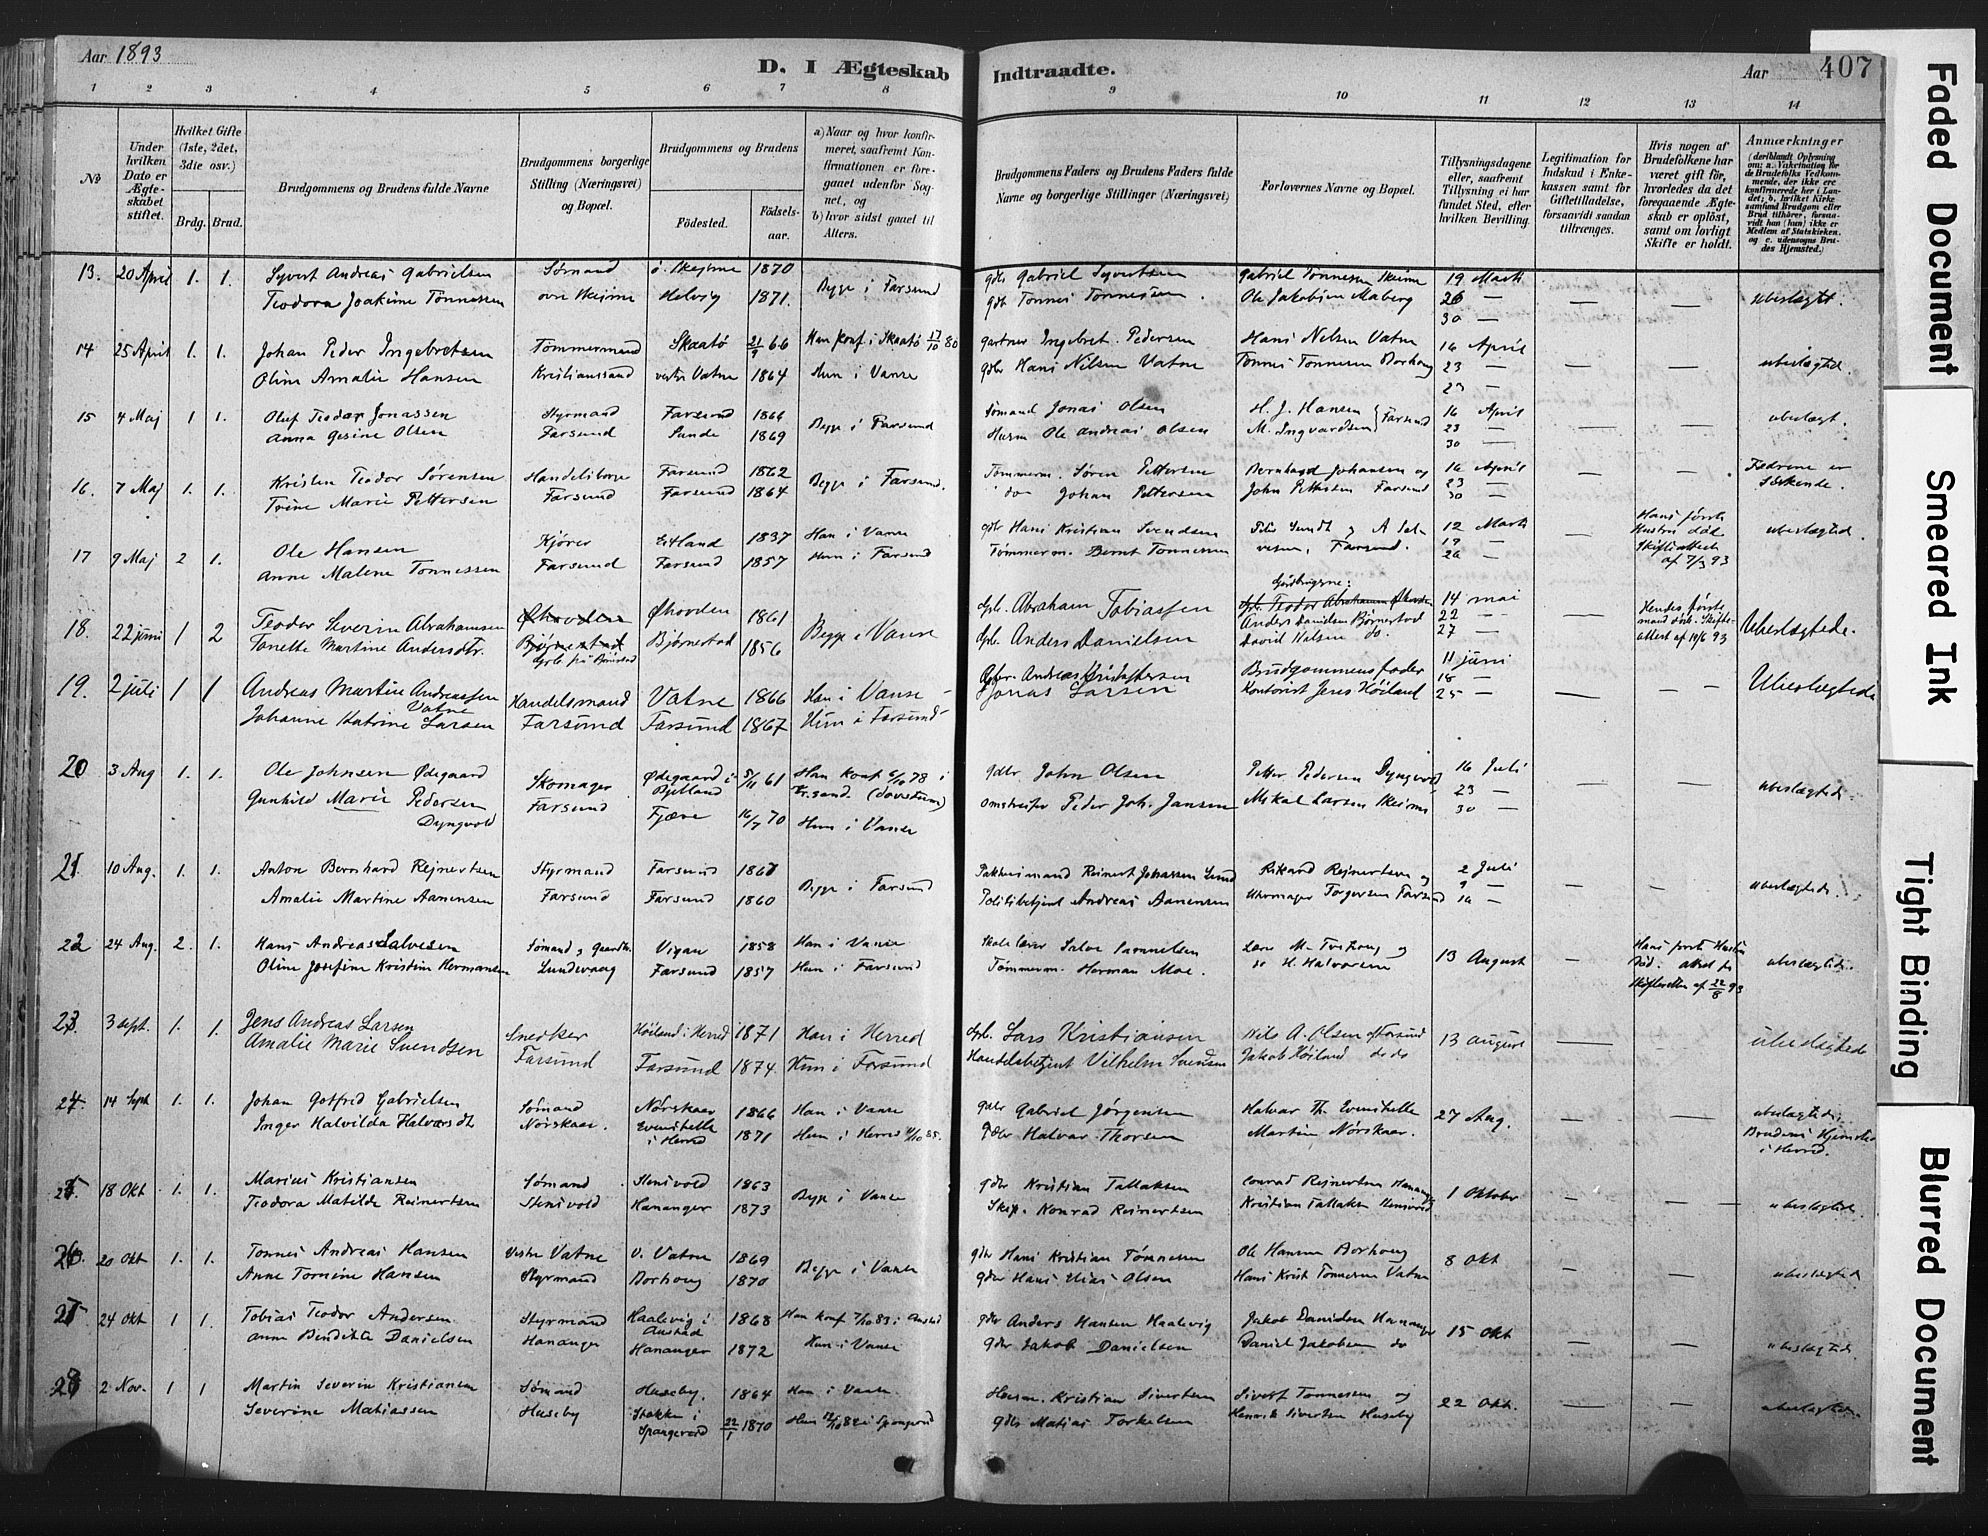 Aar 1893
D. I Ægteskab Indtraadte.
Aar 407
1 2 3 4 5 6 7 8 9 10 11 12 13 14
No
Under hvilken Dato er Ægteskabet stiftet.
Hvilket Gifte (1ste, 2det, 3die osv.)
Brdg. Brud.
Brudgommens og Brudens fulde Navne
Brudgommens borgerlige Stilling (Næringsvei) og Bopæl.
Brudgommens og Brudens
Fødested. Fødselsaar.
a) Naar og hvor konfirmeret, saafremt Konfirmationen er foregaaet udenfor Sognet, og
b) hvor sidst gaaet til Alters.
Brudgommens Faders og Brudens Faders fulde Navne og borgerlige Stillinger (Næringsvei)
Forlovernes Navne og Bopæl.
Tillysningsdagene eller, saafremt Tillysning ei har fundet Sted, efter hvilken Bevilling.
Legitimation for Indskud i Enkekassen samt for Giftetilladelse, forsaavidt saadan tiltrænges.
Hvis nogen af Brudefolkene har været gift før, hvorledes da det foregaaende Ægteskab er opløst, samt om lovligt Skifte er holdt.
Anmærkninger
(deriblandt Oplysning om: a. Vakcination for de Brudefolks Vedkommende, der ikke ere konfirmerede her i Landet; b. hvilket Kirkesamfund Brudgom eller Brud tilhører, forsaavidt han (hun) ikke er Medlem af Statskirken, og c. udensogns Brudes Hjemsted.)
13. 20 April 1. 1. Syvert Andreas Gabrielsen Sømand ø. Skejme 1870 Begge i Farsund gdb Gabriel Syvertsen Gabriel Tønnessen Skeime 19 Marts
Teodora Joakime Tønnessen ovre Skejme Helvig 1871. gdb Tønnes Tønnessen. Ole Jakobsen Maberg 26 — — — ubeslægt.
30 —
14 25 April 1. 1. Johan Peder Ingebretsen Tømmermand Skaatø 21/9 66 Han konf. i Skaatø 17/10 80 gartner Ingebret Pedersen Hans Nelsen Vatne 16 April
Oline Amalie Hansen Kristianssand vestre Vatne 1864 Hun i Vanse gdb Hans Nilsen Vatne Tønnes Tønnessen Borhaug 23 — — — ubeslægted.
23 —
15 4 Maj 1 1. Oluf Teodor Jonassen Styrmand Farsund 1866 Begge i Farsund Sømand Jonas Olsen H. J. Hansen 16 April
Anna Gesine Olsen Farsund Sunde 1869 Husm Ole Andreas Olsen M. Ingvardsen Farsund 23 — — — ubeslægt.
30 —
16. 7 Maj 1. 1. Kristen Teodor Sørensen Handelsborger Farsund 1862 Begge i Farsund. Tømmerm. Søren Pettersen Bernhard Johansen og 16 April Fædrene er
Trine Marie Pettersen Farsund Farsund 1864 do Johan Pettersen John Pettersen Farsund 23 — — — Søskende.
30 —
17 9 Maj 2 1. Ole Hansen Kjører Eitland 1837 Han i Vanse gdb Hans Kristian Svendsen Peder Lundt og A Salvesen, Farsund. 12 Marts Hans første Hustru død
Anne Malene Tønnessen Farsund Farsund 1857 Hun i Farsund Tømmerm. Bernt Tønnessen 19 — 26 — — Skifteattest af 7/3 93 ubeslægted
Gårdbrugerne:
18. 22 juni 1 2 Teodor Severin Abrahamsen Øhovden Øhovden 1861 Begge i Vanse Gbr. Abraham Tobiassen Gbr. Teodor Abrahamsen Øhovden 14 mai Hendes første
Tonette Martine Andersdtr. Bjørnestad Bjørnestad 1856 Gbr. Anders Danielsen Anders Danielsen Bjørnestad 22 — — mand død. Skifteattest af 19/6 93 Ubeslægtede.
Gbr. på Bjørnestad David Halsen do. 27 —
19. 2 juli 1 1 Andreas Martin Andreassen Vatne Handelsmand Vatne 1866 Han i Vanse Gbr. Andreas Kristoffersen Brudgommens fader 11 juni
Johanne Katrine Larsen Farsund Farsund 1867 Hun i Farsund Jonas Larsen Kontorist Jens Høiland 18 — 25 — — — Ubeslægtede
20 3 Aug 1. 1. Ole Johnsen Ødegaard Skomager Ødegaard i Bjelland 5/11 61 Han konf 6/10 78 i Kr.sand. gdbr John Olsen Petter Pedersen Dyngvold 16 Juli
Gunhild Marie Pedersen Dyngvold Farsund Fjære 16/7 70 Hun i Vanse Peder Joh. Jansen Mikal Larsen Skeime 23 — 30 — — — ubeslægtede.
21 10 Aug. 1. 1. Anton Bernhard Rejnertsen Styrmand Farsund 1867 Begge i Farsund Reinert Johannsen Lund Rikard Rejnertsen og 2 Juli
Amalie Martine Aanensen Farsund Farsund 1860 Politibetjent Andreas Aanensen Uhrmager Torgersen Farsund 9 — 16 — — — ubeslægtede.
22 24 Aug. 2. 1. Hans Andreas Salvesen Sømand Vigan 1858 Han i Vanse Skolelærer Salve Samuelsen Lærer M. og Hans første Hustru
Oline Josefine Kristine Hermansen Lundevaag Farsund 1857 Hun i Farsund Tømmerm. Herman Moe. do H. Halvorsen 13 August — død. attest fra Skifteretten af 22/8 93 ubeslægtede.
23. 3 sept. 1. 1. Jens Andreas Larsen Snedker Høiland i Herred 1871 Han i Herred Gbr. Lars Kristiansen Nils A. Olsen af Farsund 13 august
Amalie Marie Svendsen Farsund Farsund 1874 Hun i Farsund Handelsbetjent Vilhelm Svendsen Jakob Høiland do do — — ubeslægtede
24. 14 Sept 1. 1. Johan Gotfred Gabrielsen Sømand Nørskaar 1866 Han i Vanse gdbr Gabriel Jørgensen Halvar Th. Evenstelle 27 Aug. ubeslægtede.
Inger Halvilda Halvorsdt Nørskaar. Evenstelle i Herred 1871 Hun i Herred 11/10 85. gdbr Halvar Thorsen Martin Nørskaar. — — Brudens Hjemsted i Herred.
25. 18 Okt 1. 1. Marius Kristiansen Sømand Stensvold 1863 Begge i Vanse gdbr Kristian Tallaksen Conrad Rejnertsen Hananger 1 Oktober
Teodora Matilde Reinertsen Stensvold Hananger 1873 Skip. Konrad Reinertsen Kristian Tallaksen Stensvold — — ubeslægtede.
26. 20 Okt 1. 1. Tønnes Andreas Hansen Vestre Vatne V. Vatne 1869 Begge i Vanse gdbr Hans Kristian Tønnesen Ole Hansen Borhaug 8 Okt
Anne Tomine Hansen Styrmand Borhaug 1870 gdbr Hans Elias Olsen Hans Krist Tønnesen Vatne — — ubeslægtede
27 24 Okt 1 1. Tobias Teodor Andersen Styrmand Haalevig i Austad 1868 Han konf 7/10 83 i Austad gdbr Anders Hansen Haalevig Jakob Danielsen Hananger 15 Okt
Anne Benditte Danielsen Hananger Hananger 1872 Hun i Vanse gdbr Jakob Danielsen Daniel Jakobsen do — — ubeslægtede.
28 2 Nov. 1 1 Martin Severin Kristiansen Sømand Huseby. 1864 Han i Vanse. Husm. Kristian Sivertsen Sivert Tønnessen og 22 Okt.
Severine Matiassen Huseby Stokke i Spangereid 22/1 1870 Hun i Spangereid gdbr Matias Torkelsen Henrik Sivertsen Huseby — — ubeslægtede.
Faded Document
Smeared Ink
Tight Binding
Blurred Document